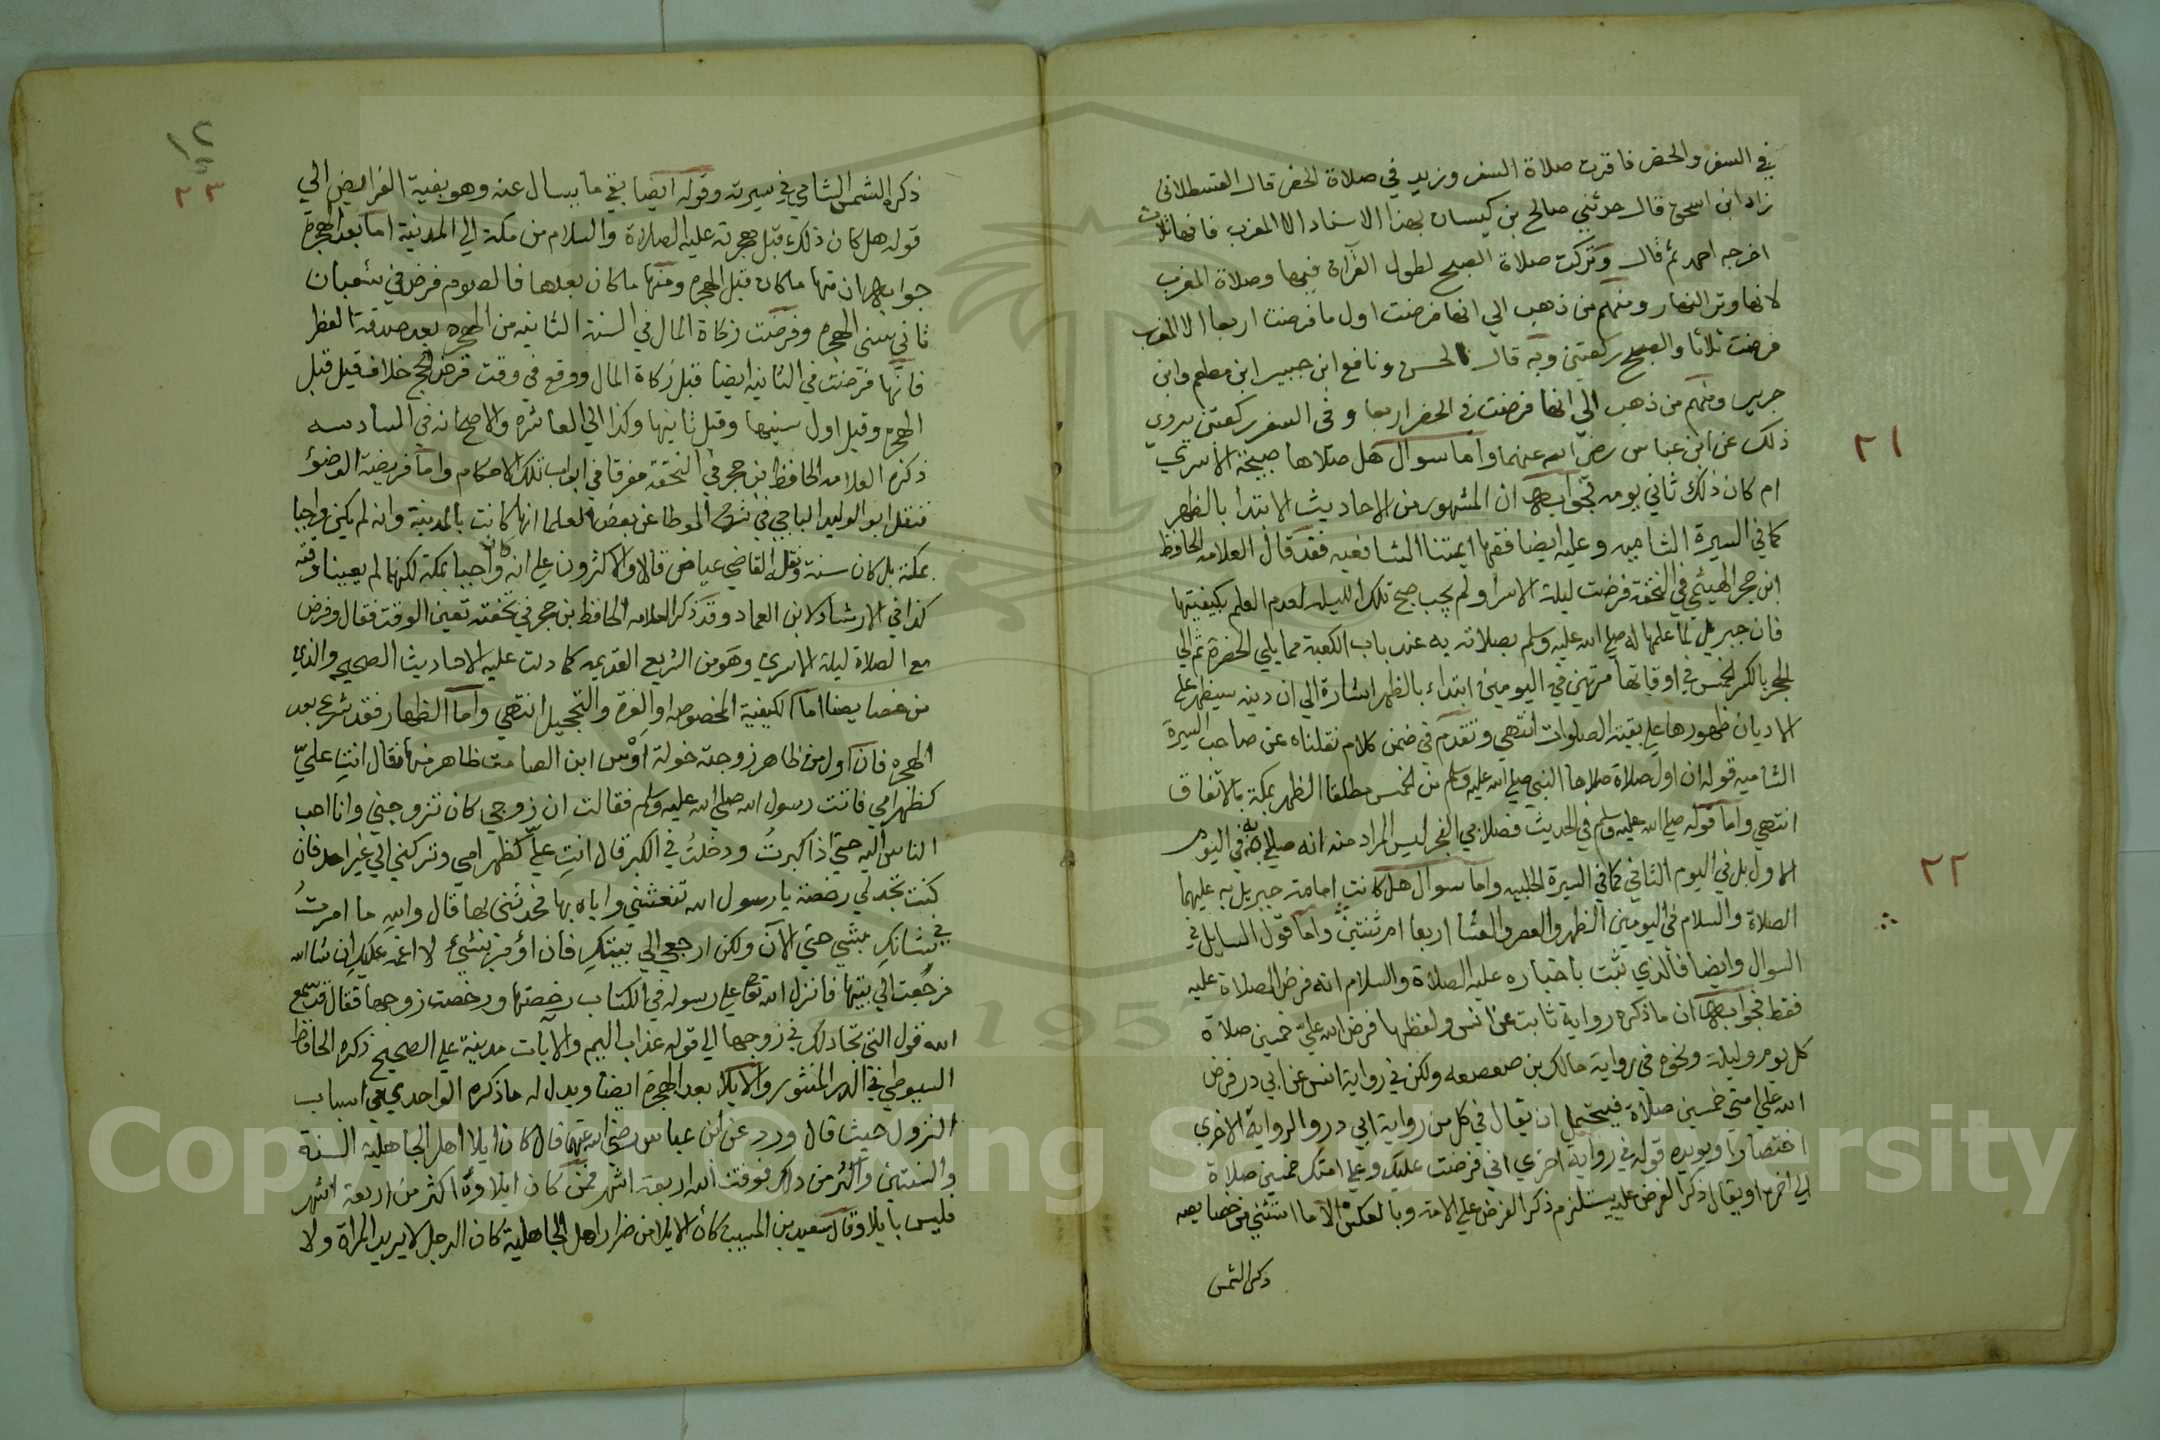 في السفر والحضر فاقرت صلاة السفر وزيد في صلاة الحضر قال القسطلاني
زاد ابن اسحق قال حدثني صالح بن كيسان بهذا الاسناد الا المغرب فانها ثلاث
اخرجه احمد ثم قال وتركت صلاة الصبح لطول القرآن فيها وصلاة المغرب
لانها وتر النهار ومنهم من ذهب الي انها فرضت اول ما فرضت اربعا الا المغرب
فرضت ثلاثا والصبح ركعتين وبه قال الحسن ونافع ابن جبير ابن مطعم وابن
جرير ومنهم من ذهب الي انها فرضت في الحضر اربعا وفي السفر ركعتين يروي
ذلك عن ابن عباس رضي الله عنهما واما سوال هل صلاها صبيحة الاسري
٢١
ام كان ذلك ثاني يومه فجوابه ان المشهور من الاحاديث الابتدأ بالظهر
كما في السيرة الشاميه وعليه ايضا فقها ايمتنا الشافعيه فقد قال العلامه الحافظ
ابن حجر الهيثمي في التحفة فرضت ليلة الاسرا ولم يجب صبح تلك الليله لعدم العلم بكيفيتها
فان جبريل لما علمها له صلي الله عليه وسلم بصلاته به عند باب الكعبة مما يلي الحفرة ثم الي
الحجر بالكسر الخمس في اوقاتها مرتين في اليومين ابتداء بالظهر اشارة الي ان دينه سيظهر علي
الاديان ظهورها علي بقية الصلوات انتهي وتقدم في ضمن كلام نقلناه عن صاحب السيرة
الشاميه قوله ان اول صلاة صلاها النبي صلي الله عليه وسلم من الخمس مطلقا الظهر بمكة بالاتفاق
انتهي واما قوله صلي الله عليه وسلم في الحديث فصلا بي الفجر ليس المراد منه انه صلي به في اليوم
الاول بل في اليوم الثاني كما في السيرة الحلبيه واما سوال هل كانت امامة جبريل به عليهما
٢٢
الصلاة والسلام في اليومين الظهر والعصر والعشا اربعا ام ثنتين واما قول السايل في
السوال وايضا فالذي ثبت باخباره عليه الصلاة والسلام انه فرض الصلاة عليه
فقط فجوابه ان ما ذكره رواية ثابت عن انس ولفظها فرض الله علي خمسين صلاة
كل يوم وليلة ونحوه في رواية مالك بن صعصعه ولكن في رواية انس عن ابي ذر فرض
الله علي امتي خمسين صلاة فيحتمل ان يقال في كل من رواية ابي ذر والرواية الاخري
اختصارا ويويده قوله في رواية اخري اني فرضت عليك وعلي امتك خمسين صلاة
الي اخره او يقال ذكر الفرض عليه يستلزم ذكر الفرض علي الامة وبالعكس الا ما استثني من خصايصه
ذكر الشمس
١٢
٢٣
ذكره الشمس الشامي في سيرته وقوله ايضا بقي ما يسال عنه وهو بقية الفرايض الي
قوله هل كان ذلك قبل هجرته عليه الصلاة والسلام من مكة الي المدينة اما بعد الهجرة
جوابه ان منها ما كان قبل الهجره ومنها ما كان بعدها فالصوم فرض في شعبان
ثاني سني الهجره وفرضت زكاة المال في السنة الثانيه من الهجره بعد صدقة الفطر
فانها فرضت في الثانيه ايضا قبل زكاة المال ووقع في وقت فرض الحج خلاف قيل قبل
الهجره وقيل اول سنيها وقيل ثانيها وكذا الي العاشره والاصح انه في السادسه
ذكره العلامه الحافظ بن حجر في التحفة مفرقا في ابواب تلك الاحكام واما فريضة الوضؤ
فنقل ابو الوليد الباجي في شرح الموطا عن بعض العلما انها كانت بالمدينة وانه لم يكن واجبا
بمكة بل كان سنة ونقله القاضي عياض قالا والاكثرون علي انه كان واجبا بمكة لكنها لم يعينا وقته
كذا في الارشاد لابن العماد وقد ذكر العلامه الحافظ بن حجر في تحفته تعين الوقت فقال وفرض
مع الصلاة ليلة الاسري وهو من الشرع القديمه كما دلت عليه الاحاديث الصحيحه والذي
من خصايصنا اما الكيفية المخصوصه او الغرة والتحجيل انتهي واما الظهار فقد شرع بعد
الهجره فان اول من ظاهر زوجته خولة اوس ابن الصامت ظاهر منها فقال انتِ عليّ
كظهر امي فاتت رسول الله صلي الله عليه وسلم فقالت ان زوجي كان تزوجني وانا احب
الناس اليه حتي اذا كبرتُ ودخلتُ في الكبر قال انتِ عليّ كظهر امي وتركني الي غير احد فان
كنت تجد لي رخصة يا رسول الله تنعشني واياه بها فحدثني بها قال والله ما امرتُ
في شانكِ بشي حتي الآن ولكن ارجعي الي بيتكِ فان اؤمر بشيء لا اغمه عليكِ ان شا الله
فرجعت الي بيتها فانزل الله تعالي علي رسوله في الكتاب رخصتها ورخصت زوجها فقال قد سمع
الله قول التي تجادلك في زوجها الي قوله عذاب اليم والآيات مدنية علي الصحيح ذكره الحافظ
السيوطي في الدر المنثور والايلا بعد الهجرة ايضا ويدل له ما ذكره الواحدي في اسباب
النزول حيث قال ورد عن ابن عباس رضي الله عنهما قال كان ايلا اهل الجاهلية السنة
والسنتين واكثر من ذلك فوقت الله اربعة اشهر فمن كان ايلاوه اكثر من اربعة اشهر
فليس بايلا وقال سعيد بن المسيب كان الايلا من ضرار اهل الجاهلية كان الرجل لا يريد المراة ولا
Copyright © King Saud University
1957